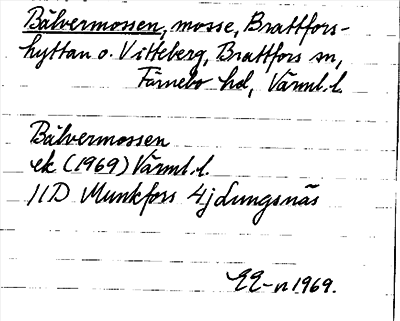 Bälvermossen, mosse, Brattfors-
hyttan o. Vitteberg, Brattfors sn,
Färnebo hd, Värml. l.
Bälvermossen
ek (1969) Värml. l.
11D Munkfors 4j Lungsnäs
EE-n 1969.